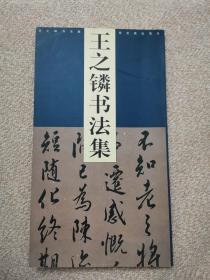 王之鏻书法集
不知老之将
遷感慨
已為陳迹
短随化终期